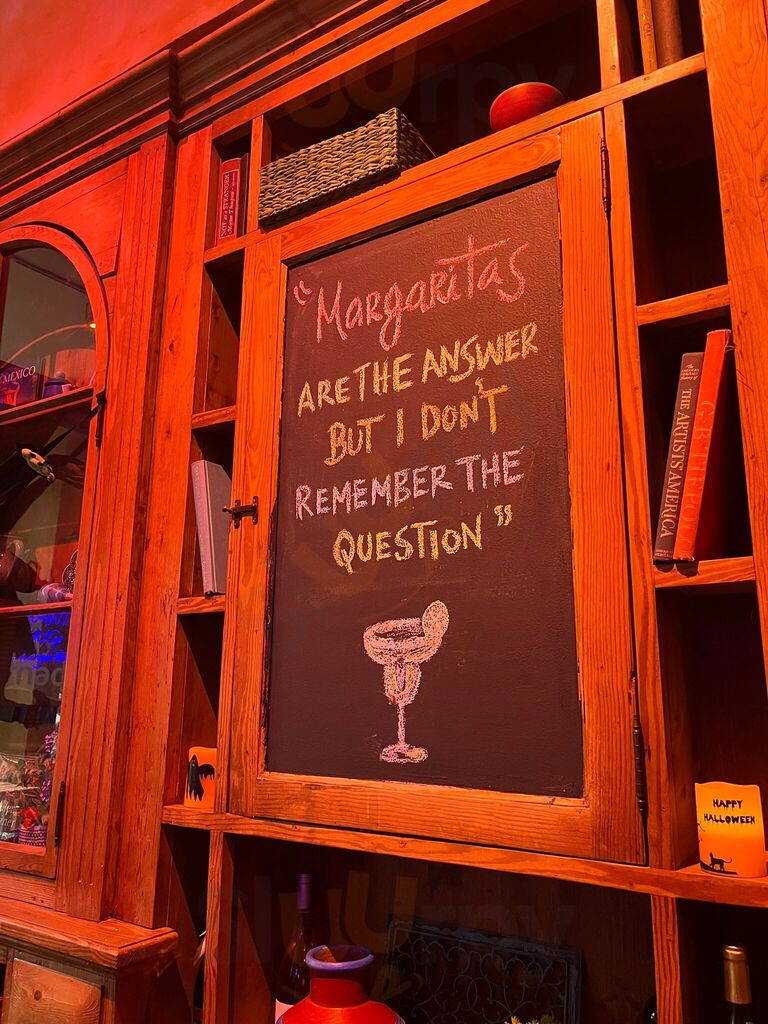 "MARGARITAS
ARE THE ANSWER
BUT I DON'T
REMEMBER THE
QUESTION"
NOT as a STRANGER
MEXICO
THE ARTISTS AMERICA
HAPPY
HALLOWEEN